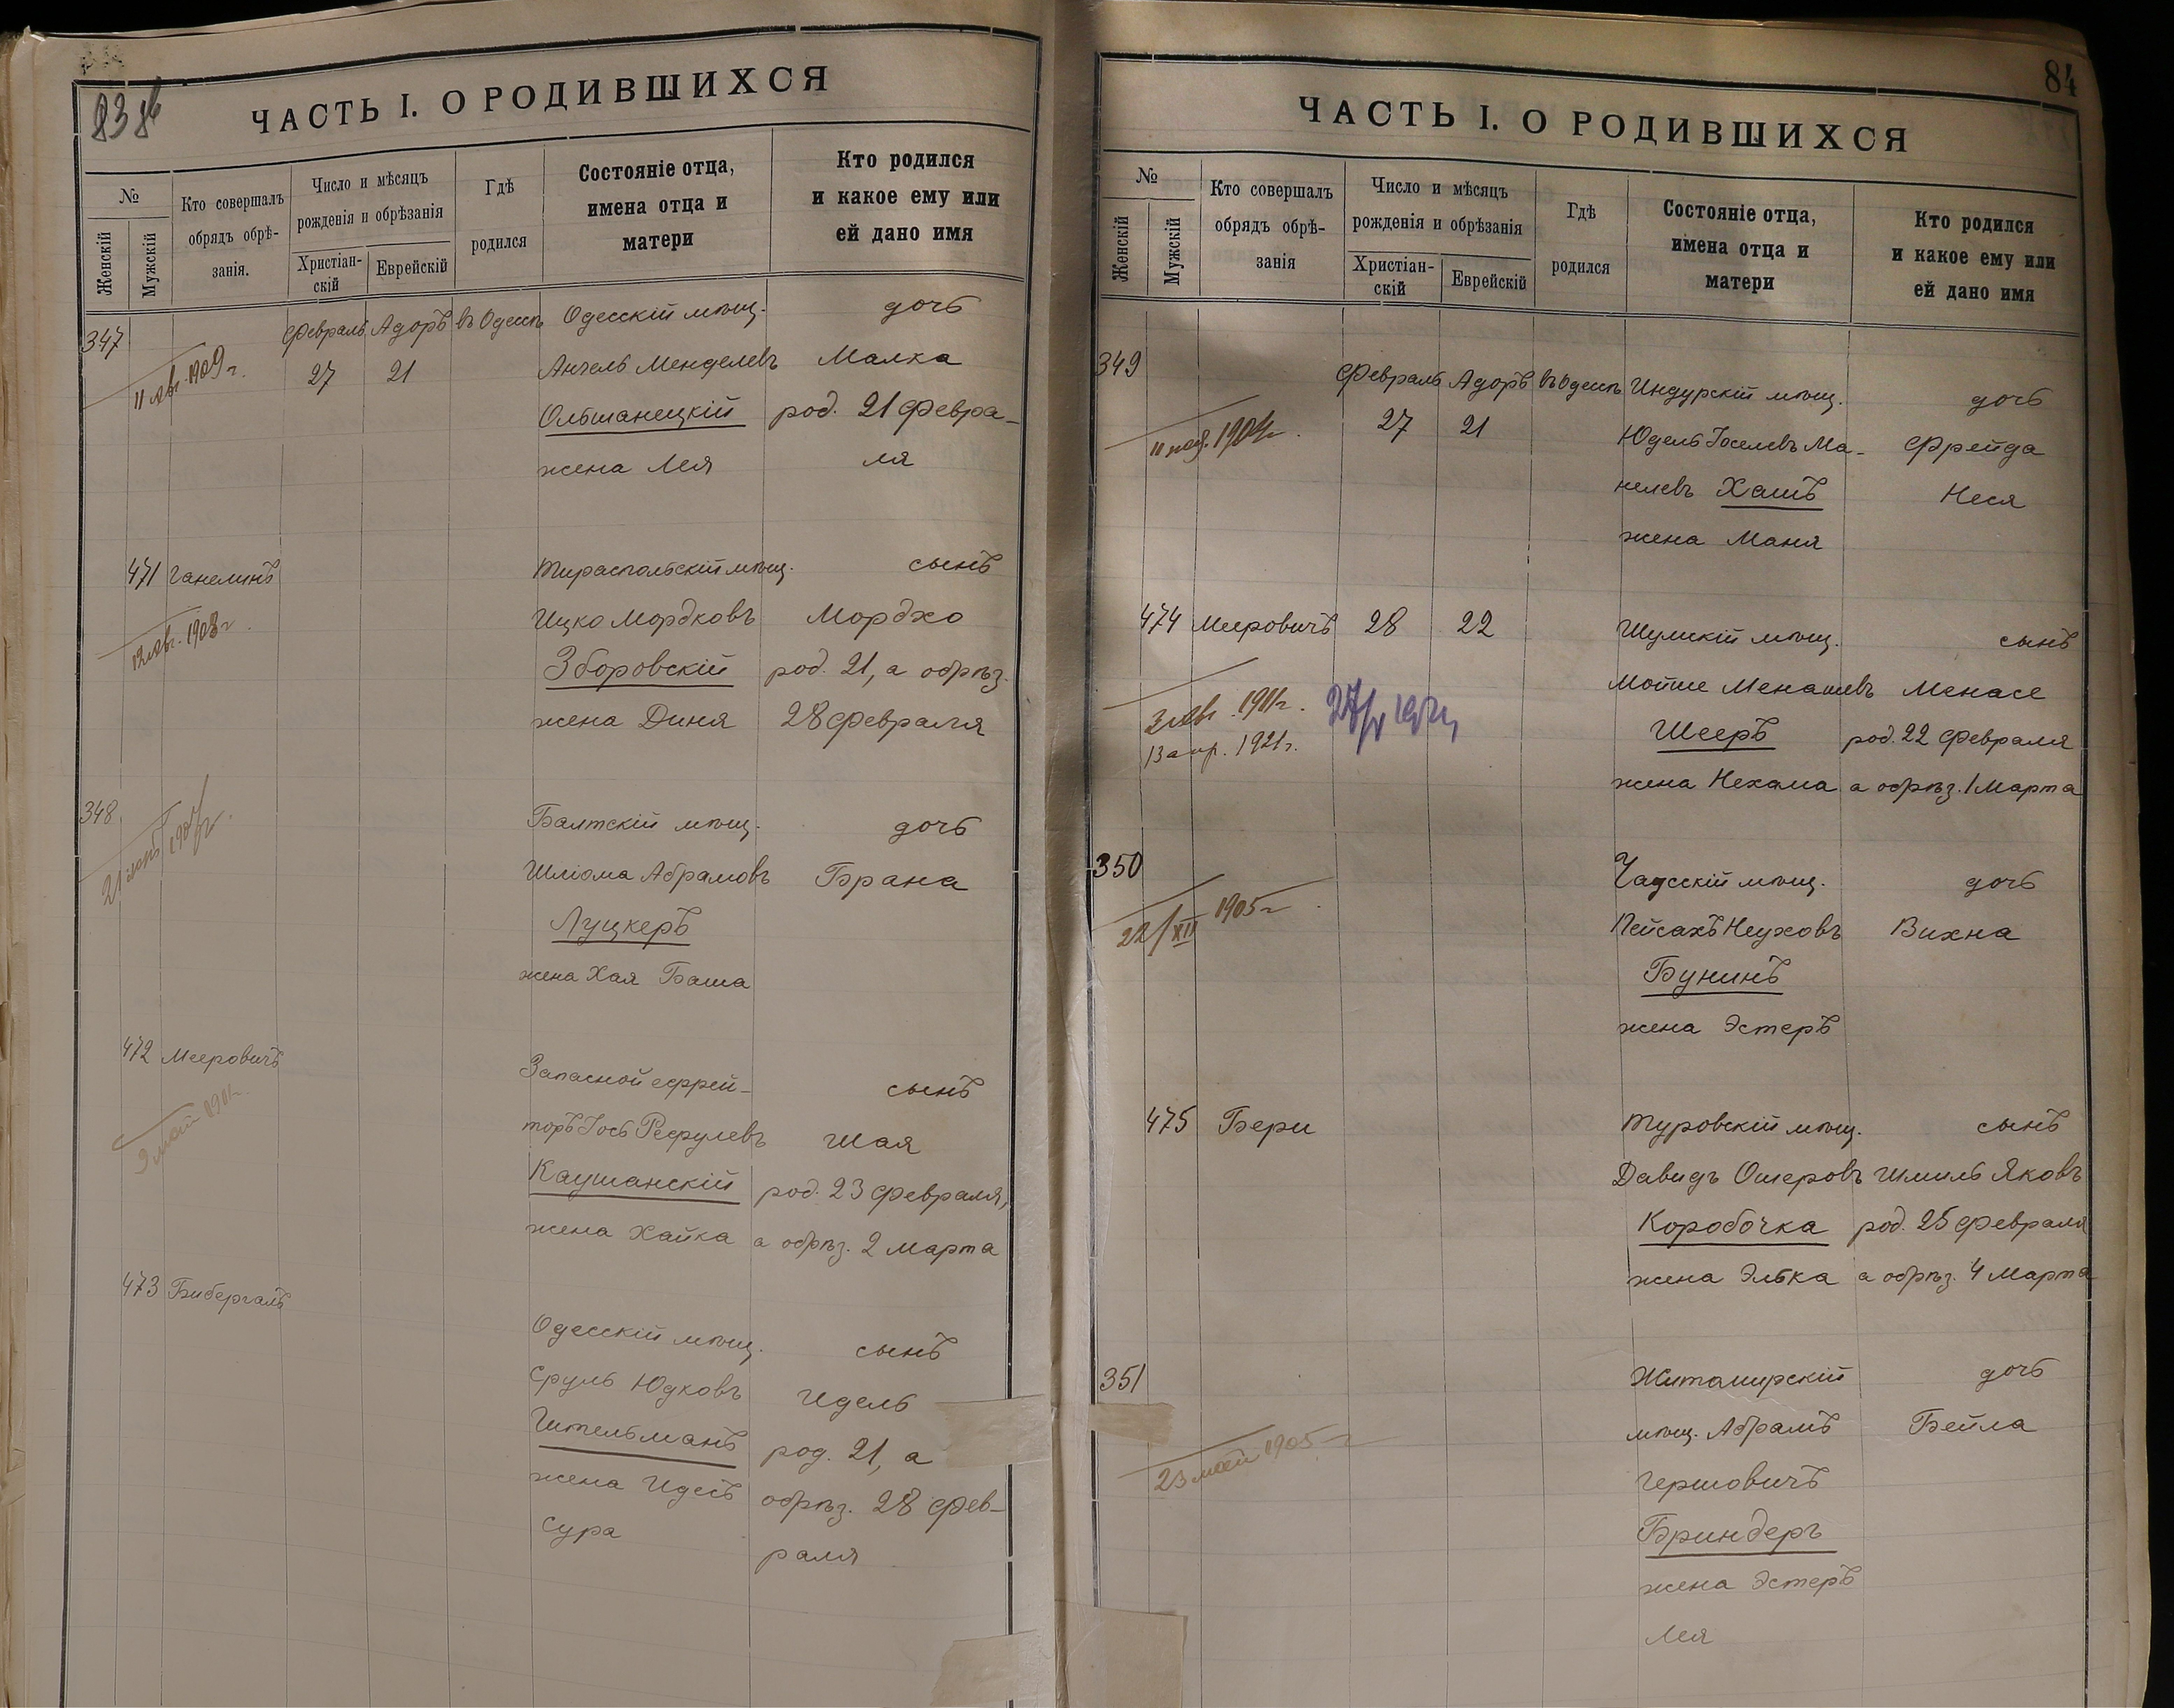 83 об
ЧАСТЬ I. О РОДИВШИХСЯ
№
Женскій
Мужскій
Кто совершалъ
обрядъ обрѣ-
занія.
Число и мѣсяцъ
рожденія и обрѣзанія
Христіан-
скій
Еврейскій
Гдѣ
родился
Состояніе отца,
имена отца и
матери
Кто родился
и какое ему или
ей дано имя
347
11 авг. 1909 г.
Февраль Адоръ въ Одессѣ Одесскій мѣщ. дочь
27 21 Анчель Менделевъ Малка
Ольшанецкій род. 21 Февра-
жена Лея ля
471 Ганелинъ Тираспольскій мѣщ. сынъ
12 авг. 1908 г. Ицко Мордковъ Мордхо
Зборовскій род. 21, а обрѣз.
жена Диня 28 Февраля
348 Балтскій мѣщ. дочь
21 1907 г. Шліома Абрамовъ Брана
Луцкеръ
жена Хая Баша
472 Мееровичъ Запасной ефрей-
сынъ
9 май 1911 г. торъ Іось Рефулевъ Шая
Каушанскій род. 23 Февраля,
жена Хайка а обрѣз. 2 Марта
473 Бибергаль
Одесскій мѣщ. сынъ
Сруль Юдковъ Идель
Штельманъ род. 21, а
жена Идесъ обрѣз. 28 Фев-
Сура раля
84
ЧАСТЬ I. О РОДИВШИХСЯ
№
Женскій
Мужскій
Кто совершалъ
обрядъ обрѣ-
занія
Число и мѣсяцъ
рожденія и обрѣзанія
Христіан-
скій
Еврейскій
Гдѣ
родился
Состояніе отца,
имена отца и
матери
Кто родился
и какое ему или
ей дано имя
349
Февраль Адоръ въ Одессѣ Индурскій мѣщ. дочь
11 1904 г. 27 21 Юдель Іоселевъ Ма- Фрейда
нелевъ Хашъ Неся
жена Маня
474 Мееровичъ 28 22 Шумскій мѣщ. сынъ
3 авг. 1911 г. Мойше Менашевъ Менасе
13 апр. 1921 г. Шееръ род. 22 Февраля
жена Нехама а обрѣз. 1 Марта
350 Чадсскій мѣщ. дочь
22/XII 1905 г. Пейсахъ Неуховъ Вихна
Бунинъ
жена Эстеръ
475 Бери Туровскій мѣщ. сынъ
Давидъ Ошеровъ Шмиль Яковъ
Коробочка род. 25 Февраля
жена Элька а обрѣз. 4 Марта
351 Житомирскій дочь
23 май 1905 г. мѣщ. Абрамъ Бейла
Гершовичъ
Бриндеръ
жена Эстеръ
Лея